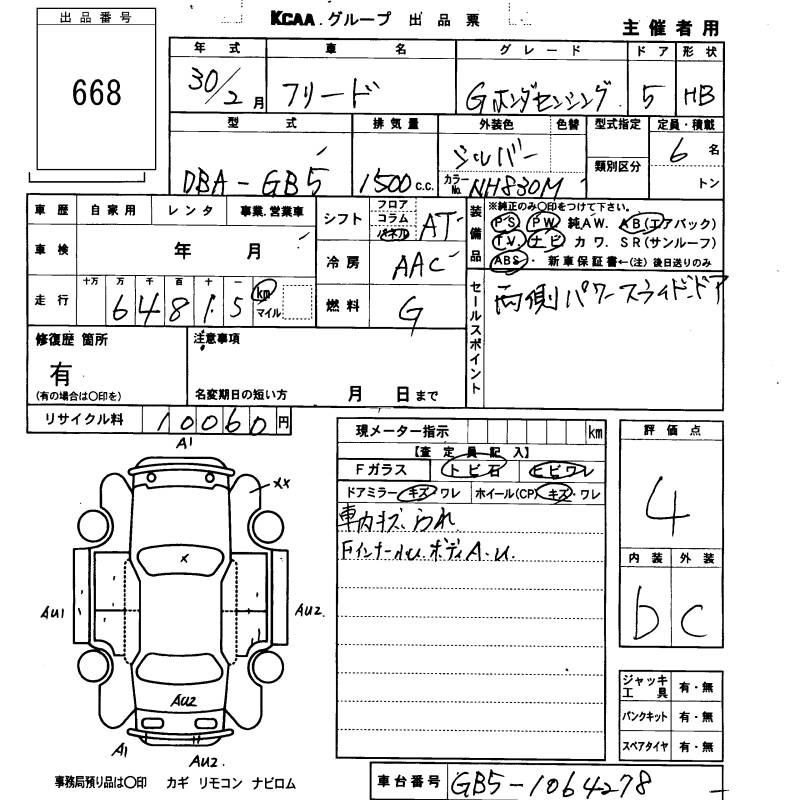 出品番号
668
KCAA グループ 出品票
主催者用
年式 車名 グレード ドア 形状
30/2月 フリード Gホンダセンシング 5 HB
型式 排気量 外装色 色替 型式指定 定員・積載
DBA-GB5 1500c.c. シルバー カラーNo. NH830M 類別区分 6名 トン
車歴 自家用 レンタ 事業.営業車
シフト フロア コラム パネル AT
装備品 ※純正のみ〇印をつけて下さい。
PS PW 純AW. AB(エアバック)
TV. ナビ カワ. SR(サンルーフ)
ABS・ 新車保証書←(注)後日送りのみ
車検 年 月
冷房 AAC
走行 十万 万 千 百 十 一 km マイル
6 4 8 1 5
燃料 G
セールスポイント 両側パワースライドドア
修復歴 箇所
有
(有の場合は〇印を)
注意事項
名変期日の短い方 月 日まで
リサイクル料 10060円
現メーター指示 km
【査定員記入】
Fガラス トビ石 ヒビワレ
ドアミラー キズ・ワレ ホイール(CP) キズ・ワレ
車内キズ.られ
ボディA.u.
評価点
4
内装 外装
b C
A1
XX
X
AU1
AU2.
AU2
A1
AU2.
ジャッキ工具 有・無
パンクキット 有・無
スペアタイヤ 有・無
事務局預り品は〇印 カギ リモコン ナビロム
車台番号 GB5-1064278